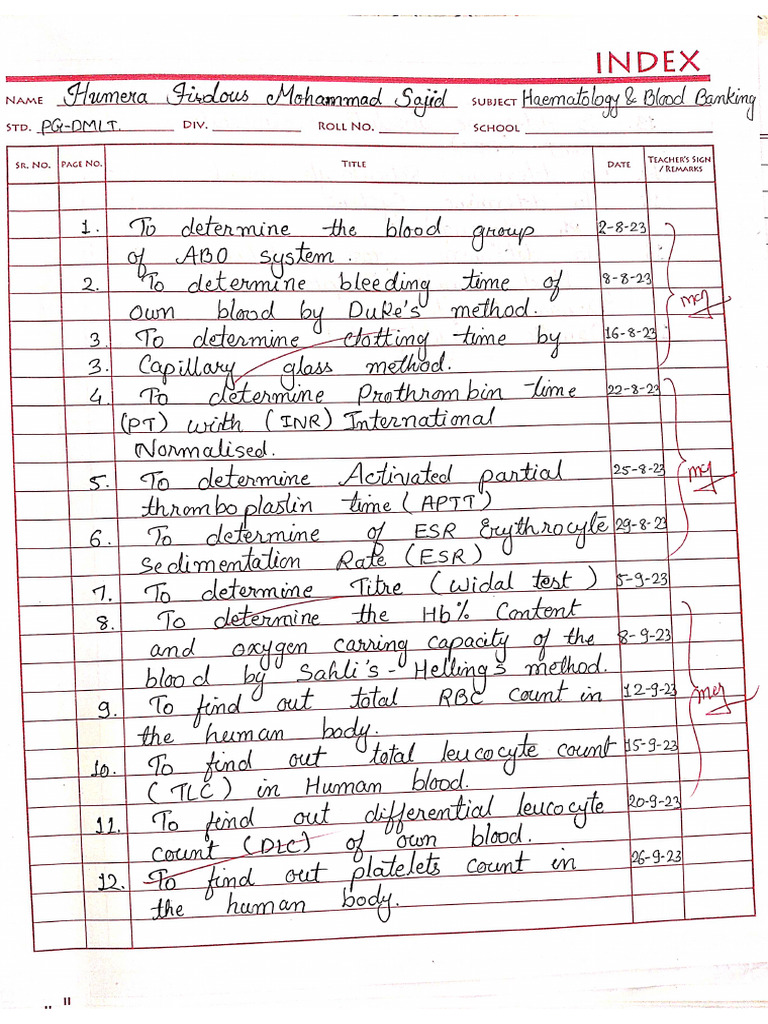 INDEX
NAME Humera Firdous Mohammad Sajid SUBJECT Haematology & Blood Banking
STD. PG-DMLT. DIV. ROLL NO. SCHOOL
SR. NO. PAGE NO. TITLE DATE TEACHER'S SIGN / REMARKS
1. To determine the blood group 2-8-23
of ABO system.
2. To determine bleeding time of 8-8-23
own blood by Duke's method.
3. To determine clotting time by 16-8-23
3. Capillary glass method.
4. To determine Prothrombin time 22-8-23
(PT) with (INR) International
Normalised.
5. To determine Activated partial 25-8-23
thromboplastin time (APTT)
6. To determine of ESR Erythrocyte 29-8-23
Sedimentation Rate (ESR)
7. To determine Titre (Widal test) 5-9-23
8. To determine the Hb% Content
and oxygen carring capacity of the 8-9-23
blood by Sahli's - Helling's method.
9. To find out total RBC count in 12-9-23
the human body.
10. To find out total leucocyte count 15-9-23
(TLC) in Human blood.
11. To find out differential leucocyte 20-9-23
count (DLC) of own blood.
12. To find out platelets count in 26-9-23
the human body.